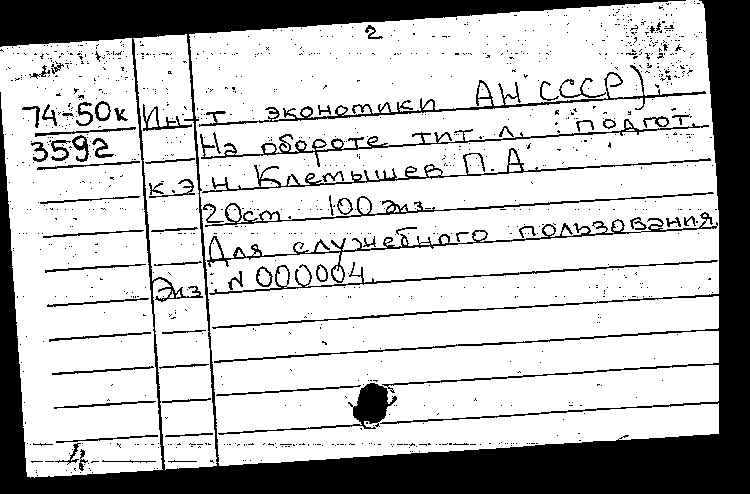 2
74-50к Ин-т экономики АН СССР).
3592 На обороте тит. л. : подгот.
к.э.н. Клемышев П.А.
20ст. 100 экз.
Для служебного пользования
Экз. N 000004.
4